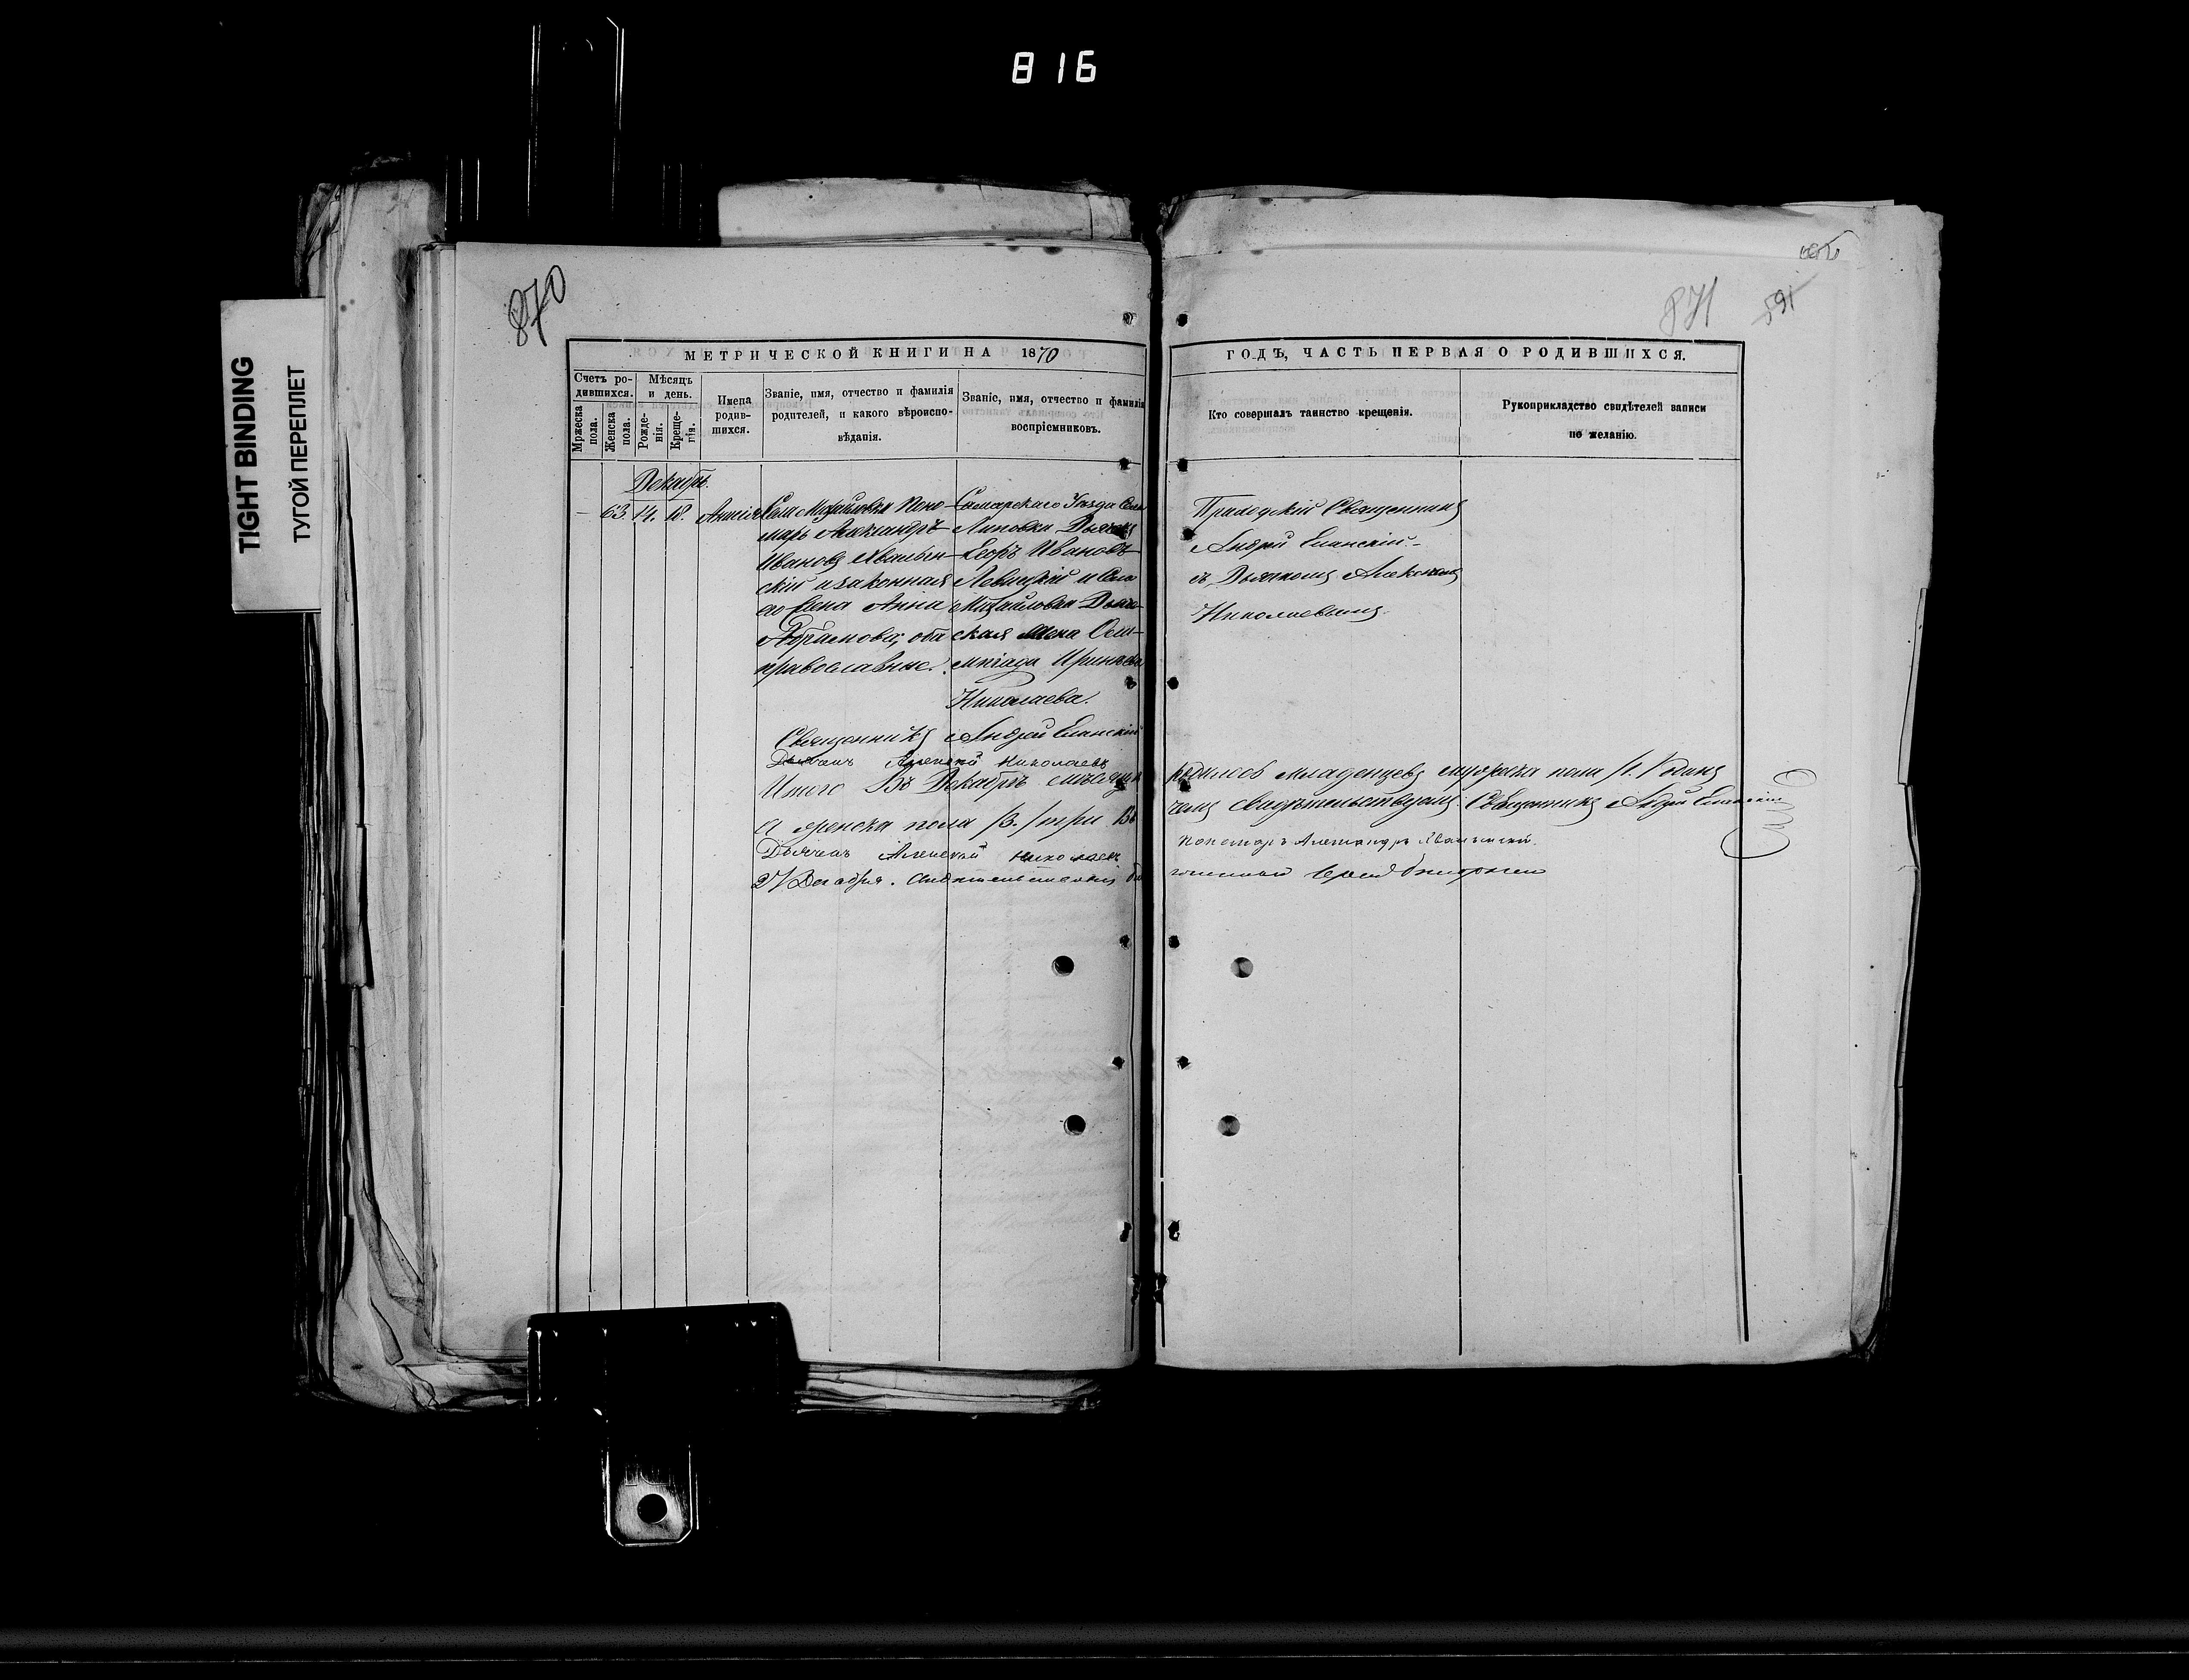 816
TIGHT BINDING
ТУГОЙ ПЕРЕПЛЕТ
870
МЕТРИЧЕСКОЙ КНИГИ НА 1870
Счетъ родившихся.
Мужеска пола.
Женска пола.
Мѣсяцъ и день.
Рожденія.
Крещенія.
Имена родившихся.
Званіе, имя, отчество и фамилія
родителей, и какого вѣроиспо-
вѣданія.
Званіе, имя, отчество и фамилія
воспріемниковъ.
Декабрь.
63. 14. 18.
Села Михайловки Поно-
марь Александръ
Ивановъ Хвалын-
скій и законная
его жена Анна
Абрамова, оба
православные.
Самарскаго Уѣзда Села
Липовки Дьячекъ
Егоръ Ивановъ
Левицкій и Села
Михайловки Дьяче-
ская жена Оли-
мпіада
Николаева.
Священникъ Андрей Еланскій
Дьячекъ Алексѣй Николаевъ
Итого Въ Декабрѣ мѣсяцѣ
А женска пола /3./ три Въ
Дьячекъ Алексѣй Николаевъ
27 Декабря.
871
591
ГОДЪ, ЧАСТЬ ПЕРВАЯ О РОДИВШИХСЯ.
Кто совершалъ таинство крещенія.
Рукоприкладство свидѣтелей записи
по желанію.
Приходскій Священникъ
Андрей Еланскій
съ Дьячкомъ Алексѣемъ
Николаевымъ.
родилось младенцевъ мужеска пола /1./ одинъ
чемъ свидѣтельствуемъ: Священникъ Андрей Еланскій
Пономарь Александръ Хвалынскій.